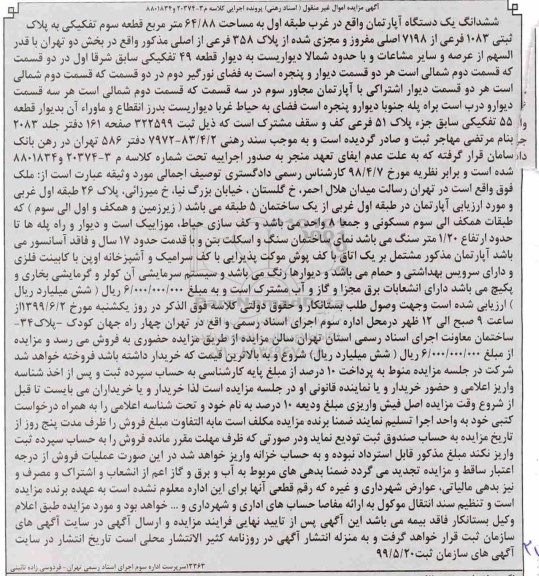 آگهی مزایده اموال غیر منقول ( اسناد رهنی ) پرونده اجرایی کلاسه م۳-۲۰۳۷۴ و ۸۸۰۱۸۳۴
ششدانگ یک دستگاه آپارتمان واقع در غرب طبقه اول به مساحت ۶۴/۸۸ متر مربع قطعه سوم تفکیکی به پلاک
ثبتی ۱۰۸۳ فرعی از ۷۱۹۸ اصلی مفروز و مجزی شده از پلاک ۳۵۸ فرعی از اصلی مذکور واقع در بخش دو تهران با قدر
السهم از عرصه و سایر مشاعات و با حدود شمالا دیواریست به دیوار قطعه ۴۹ تفکیکی سابق شرقا اول در دو قسمت
که قسمت دوم شمالی است هر دو قسمت دیوار و پنجره است به فضای نورگیر دوم در دو قسمت که قسمت دوم شمالی
است هر دو قسمت دیوار اشتراکی با آپارتمان مجاور سوم در سه قسمت که قسمت دوم شمالی است هر سه قسمت
دیوارو درب است براه پله جنوبا دیوارو پنجره است فضای به حیاط غربا دیواریست بدرز انقطاع و ماوراء آن بدیوار قطعه
۵۵ تفکیکی سابق جزء پلاک ۵۱ فرعی کف و سقف مشترک است که ذیل ثبت ۳۲۲۵۹۹ صفحه ۱۶۱ دفتر جلد ۲۰۸۳
بنام مرتضی مهاجر ثبت و صادر گردیده است و به موجب سند رهنی ۸۳/۴/۲-۷۹۷۲ دفتر ۵۸۶ تهران در رهن بانک
سامان قرار گرفته که به علت عدم ایفای تعهد منجر به صدور اجراییه تحت شماره کلاسه م ۳-۲۰۳۷۴ و ۸۸۰۱۸۳۴
شده است و برابر نظریه مورخ ۹۸/۴/۷ کارشناس رسمی دادگستری توصیف اجمالی مورد وثیقه عبارت است از: ملک
فوق واقع است در تهران رسالت میدان هلال احمر، خ گلستان ، خیابان بزرگ نیا، خ میرزائی، پلاک ۲۶ طبقه اول غربی
و مورد ارزیابی آپارتمان در طبقه اول غربی از یک ساختمان ۵ طبقه می باشد ( زیرزمین و همکف و اول الی سوم ) که
طبقات همکف الی سوم مسکونی و جمعا ۸ واحد می باشد و کف سازی حیاط، موزاییک است و دیوار و راه پله ها تا
حدود ارتفاع ۱/۲۰ متر سنگ می باشد نمای ساختمان سنگ و اسکلت بتن و با قدمت حدود ۱۷ سال و فاقد آسانسور می
باشد آپارتمان مذکور مشتمل بر یک اتاق با کف پوش موکت پذیرایی با کف سرامیک و آشپزخانه اوپن با کابینت فلزی
و دارای سرویس بهداشتی و حمام می باشد و دیوارها رنگ می باشد و سیستم سرمایشی آن کولر و گرمایشی بخاری و
پکیج می باشد دارای انشعابات برق مجزا و گاز و آب مشترک است و به مبلغ ۶/۰۰۰/۰۰۰/۰۰۰ ریال ( شش میلیارد ریال
) ارزیابی شده است وجهت وصول طلب بستانکار و حقوق دولتی کلاسه فوق الذکر در روز یکشنبه مورخ ۱۳۹۹/۶/۲از
ساعت ۹ صبح الی ۱۲ ظهر درمحل اداره سوم اجرای اسناد رسمی واقع در تهران چهار راه جهان کودک -پلاک۳۴-
ساختمان معاونت اجرای اسناد رسمی استان تهران سالن مزایده از طریق مزایده حضوری به فروش می رسد و مزایده
از مبلغ ۶/۰۰۰/۰۰۰/۰۰۰ ریال ( شش میلیارد ریال) شروع و به بالاترین قیمت که خریدار داشته باشد فروخته خواهد شد
شرکت در جلسه مزایده منوط به پرداخت ۱۰ درصد از مبلغ پایه کارشناسی به حساب سپرده ثبت و پس از اخذ شناسه
واریز اعلامی و حضور خریدار و یا نماینده قانونی او در جلسه مزایده است لذا خریدار و یا خریداران می بایست تا قبل
از شروع وقت مزایده اصل فیش واریزی مبلغ ودیعه ۱۰ درصد به نام خود و تحت شناسه اعلامی را به همراه درخواست
کتبی خود به واحد اجرا تسلیم نمایند ضمنا برنده مزایده مکلف است مابه التفاوت مبلغ فروش را ظرف مدت پنج روز از
تاریخ مزایده به حساب صندوق ثبت تودیع نماید ودر صورتی که ظرف مهلت مقرر مانده فروش را به حساب سپرده ثبت
واریز نکند مبلغ مذکور قابل استرداد نبوده و به حساب خزانه واریز خواهد شد در این صورت عملیات فروش از درجه
اعتبار ساقط و مزایده تجدید می گردد ضمنا بدهی های مربوط به آب و برق و گاز اعم از انشعاب و اشتراک و مصرف و
نیز بدهی مالیاتی، عوارض شهرداری و غیره که رقم قطعی آنها برای این اداره معلوم نشده است به عهده برنده مزایده
است و تنظیم سند انتقال موکول به ارائه مفاصا حساب های اداری و شهرداری و ... خواهد بود و مورد مزایده طبق اعلام
وکیل بستانکار فاقد بیمه می باشد این آگهی پس از تایید نهایی فرایند مزایده و ارسال آگهی در سایت آگهی های
سازمان ثبت قرار خواهد گرفت و به منزله انتشار آگهی در روزنامه کثیر الانتشار محلی است تاریخ انتشار در سایت
آگهی های سازمان ثبت: ۹۹/۵/۲۰
۱۳۲۶۳سرپرست اداره سوم اجرای اسناد رسمی تهران - فردوسی زاده نائینی